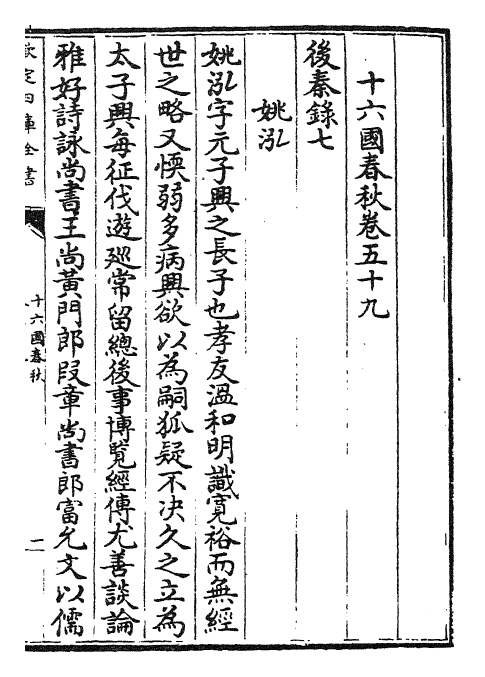 十六國春秋卷五十九
後秦錄七
姚泓
姚泓字元子興之長子也孝友温和明識寛裕而無經
世之略又愞弱多病興欲以為嗣狐疑不決久之立為
太子興每征伐遊廵常留總後事博覧經傳尤善談論
雅好詩詠尚書王尚黃門郎段章尚書郎富允文以儒
欽定四庫全書
十六國春秋
二